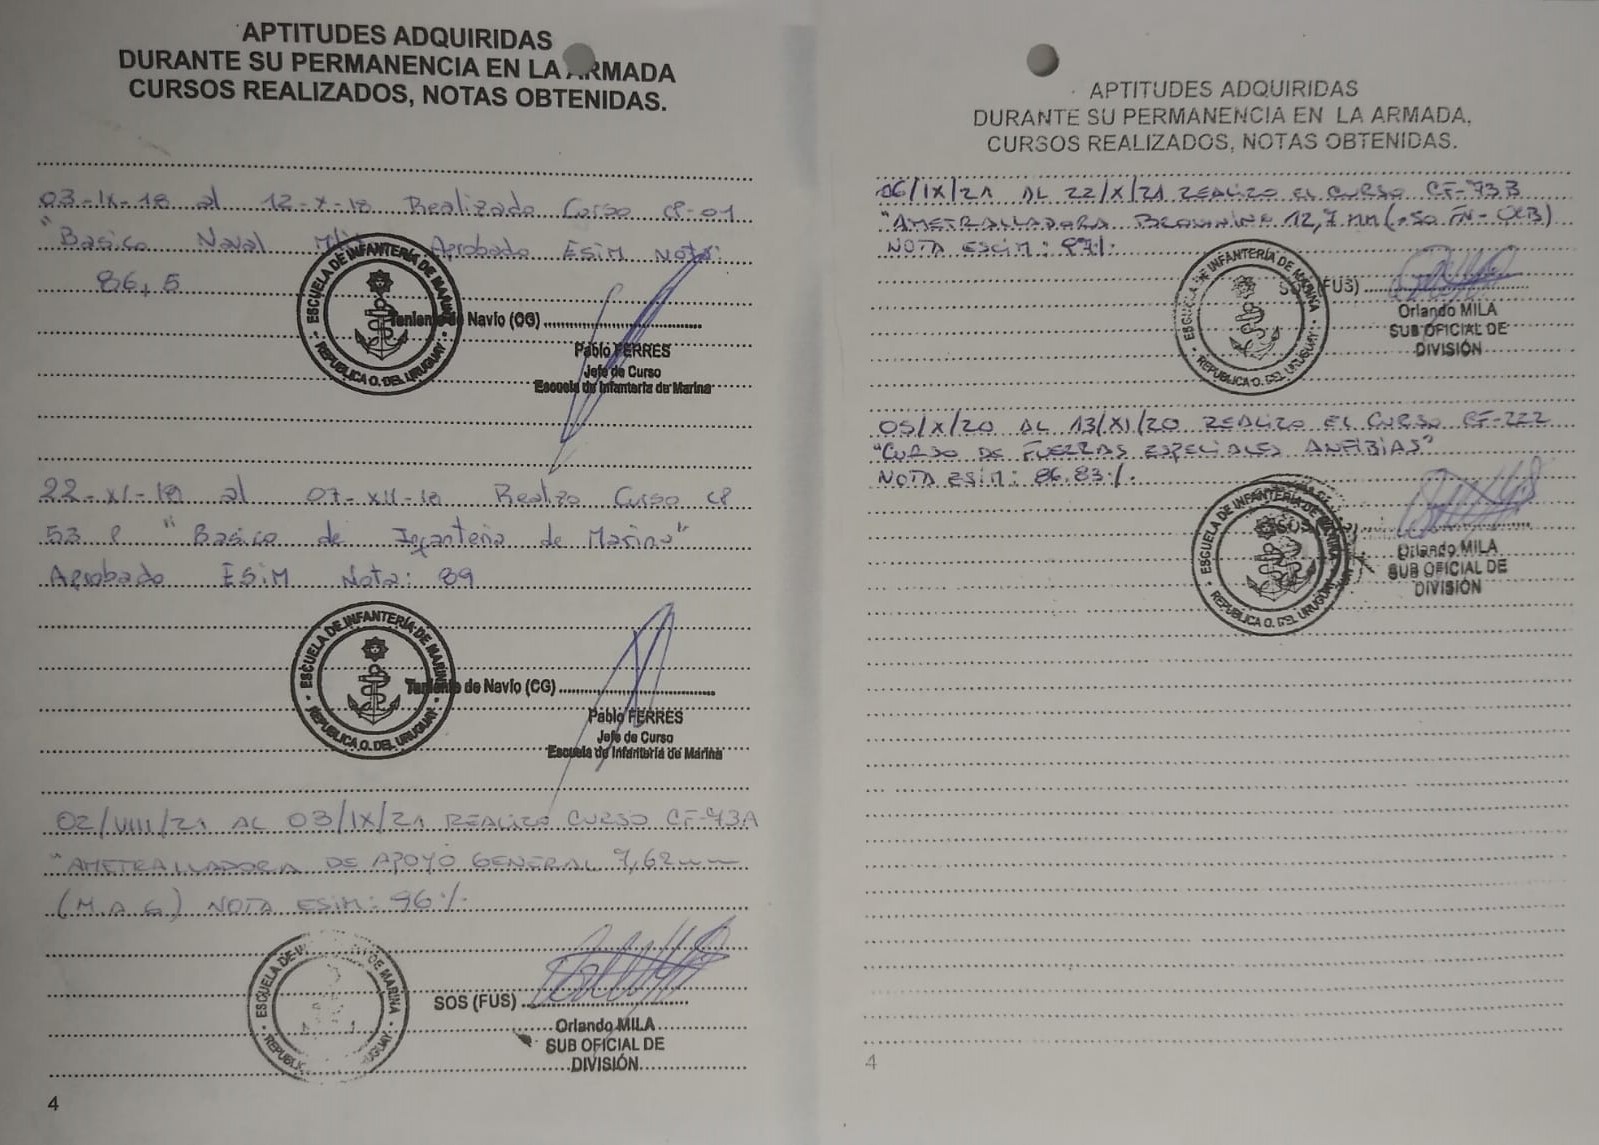 APTITUDES ADQUIRIDAS
DURANTE SU PERMANENCIA EN LA ARMADA
CURSOS REALIZADOS, NOTAS OBTENIDAS.
03-IX-18 al 12-X-18 Realizado Curso CP-01
"Basico Naval Aprobado ESIM Nota:
86,5
ESCUELA DE INFANTERÍA DE MARINA
REPUBLICA O. DEL URUGUAY
Teniente de Navio (CG)
Pablo FERRES
Jefe de Curso
Escuela de Infantería de Marina
22-XI-18 al 07-XII-18 Realizo Curso CP
53 "Basico de Infanteria de Marina"
Aprobado ESIM Nota: 89
ESCUELA DE INFANTERÍA DE MARINA
REPUBLICA O. DEL URUGUAY
Teniente de Navio (CG)
Pablo FERRES
Jefe de Curso
Escuela de Infantería de Marina
02/VIII/21 AL 03/IX/21 REALIZO CURSO CF-43A
"AMETRALLADORA DE APOYO GENERAL 7,62mm
(M.A.G) NOTA ESIM: 96%.
ESCUELA DE DE MARINA
SOS (FUS)
Orlando MILA
SUB OFICIAL DE
DIVISIÓN
4
APTITUDES ADQUIRIDAS
DURANTE SU PERMANENCIA EN LA ARMADA,
CURSOS REALIZADOS, NOTAS OBTENIDAS.
06/IX/21 AL 22/X/21 REALIZO EL CURSO
"AMETRALLADORA BROWNING 12,7 mm
NOTA
ESCUELA DE INFANTERÍA DE MARINA
REPUBLICA O. DEL URUGUAY
(FUS)
Orlando MILA
SUB OFICIAL DE
DIVISIÓN
05/X/20 AL 13/XI/20 REALIZO EL CURSO CF-222
"CURSO DE FUERZAS ESPECIALES ANFIBIAS"
NOTA ESIM: 86.83%.
ESCUELA DE INFANTERÍA DE MARINA
REPUBLICA O. DEL URUGUAY
SOS
Orlando MILA
SUB OFICIAL DE
DIVISIÓN
4